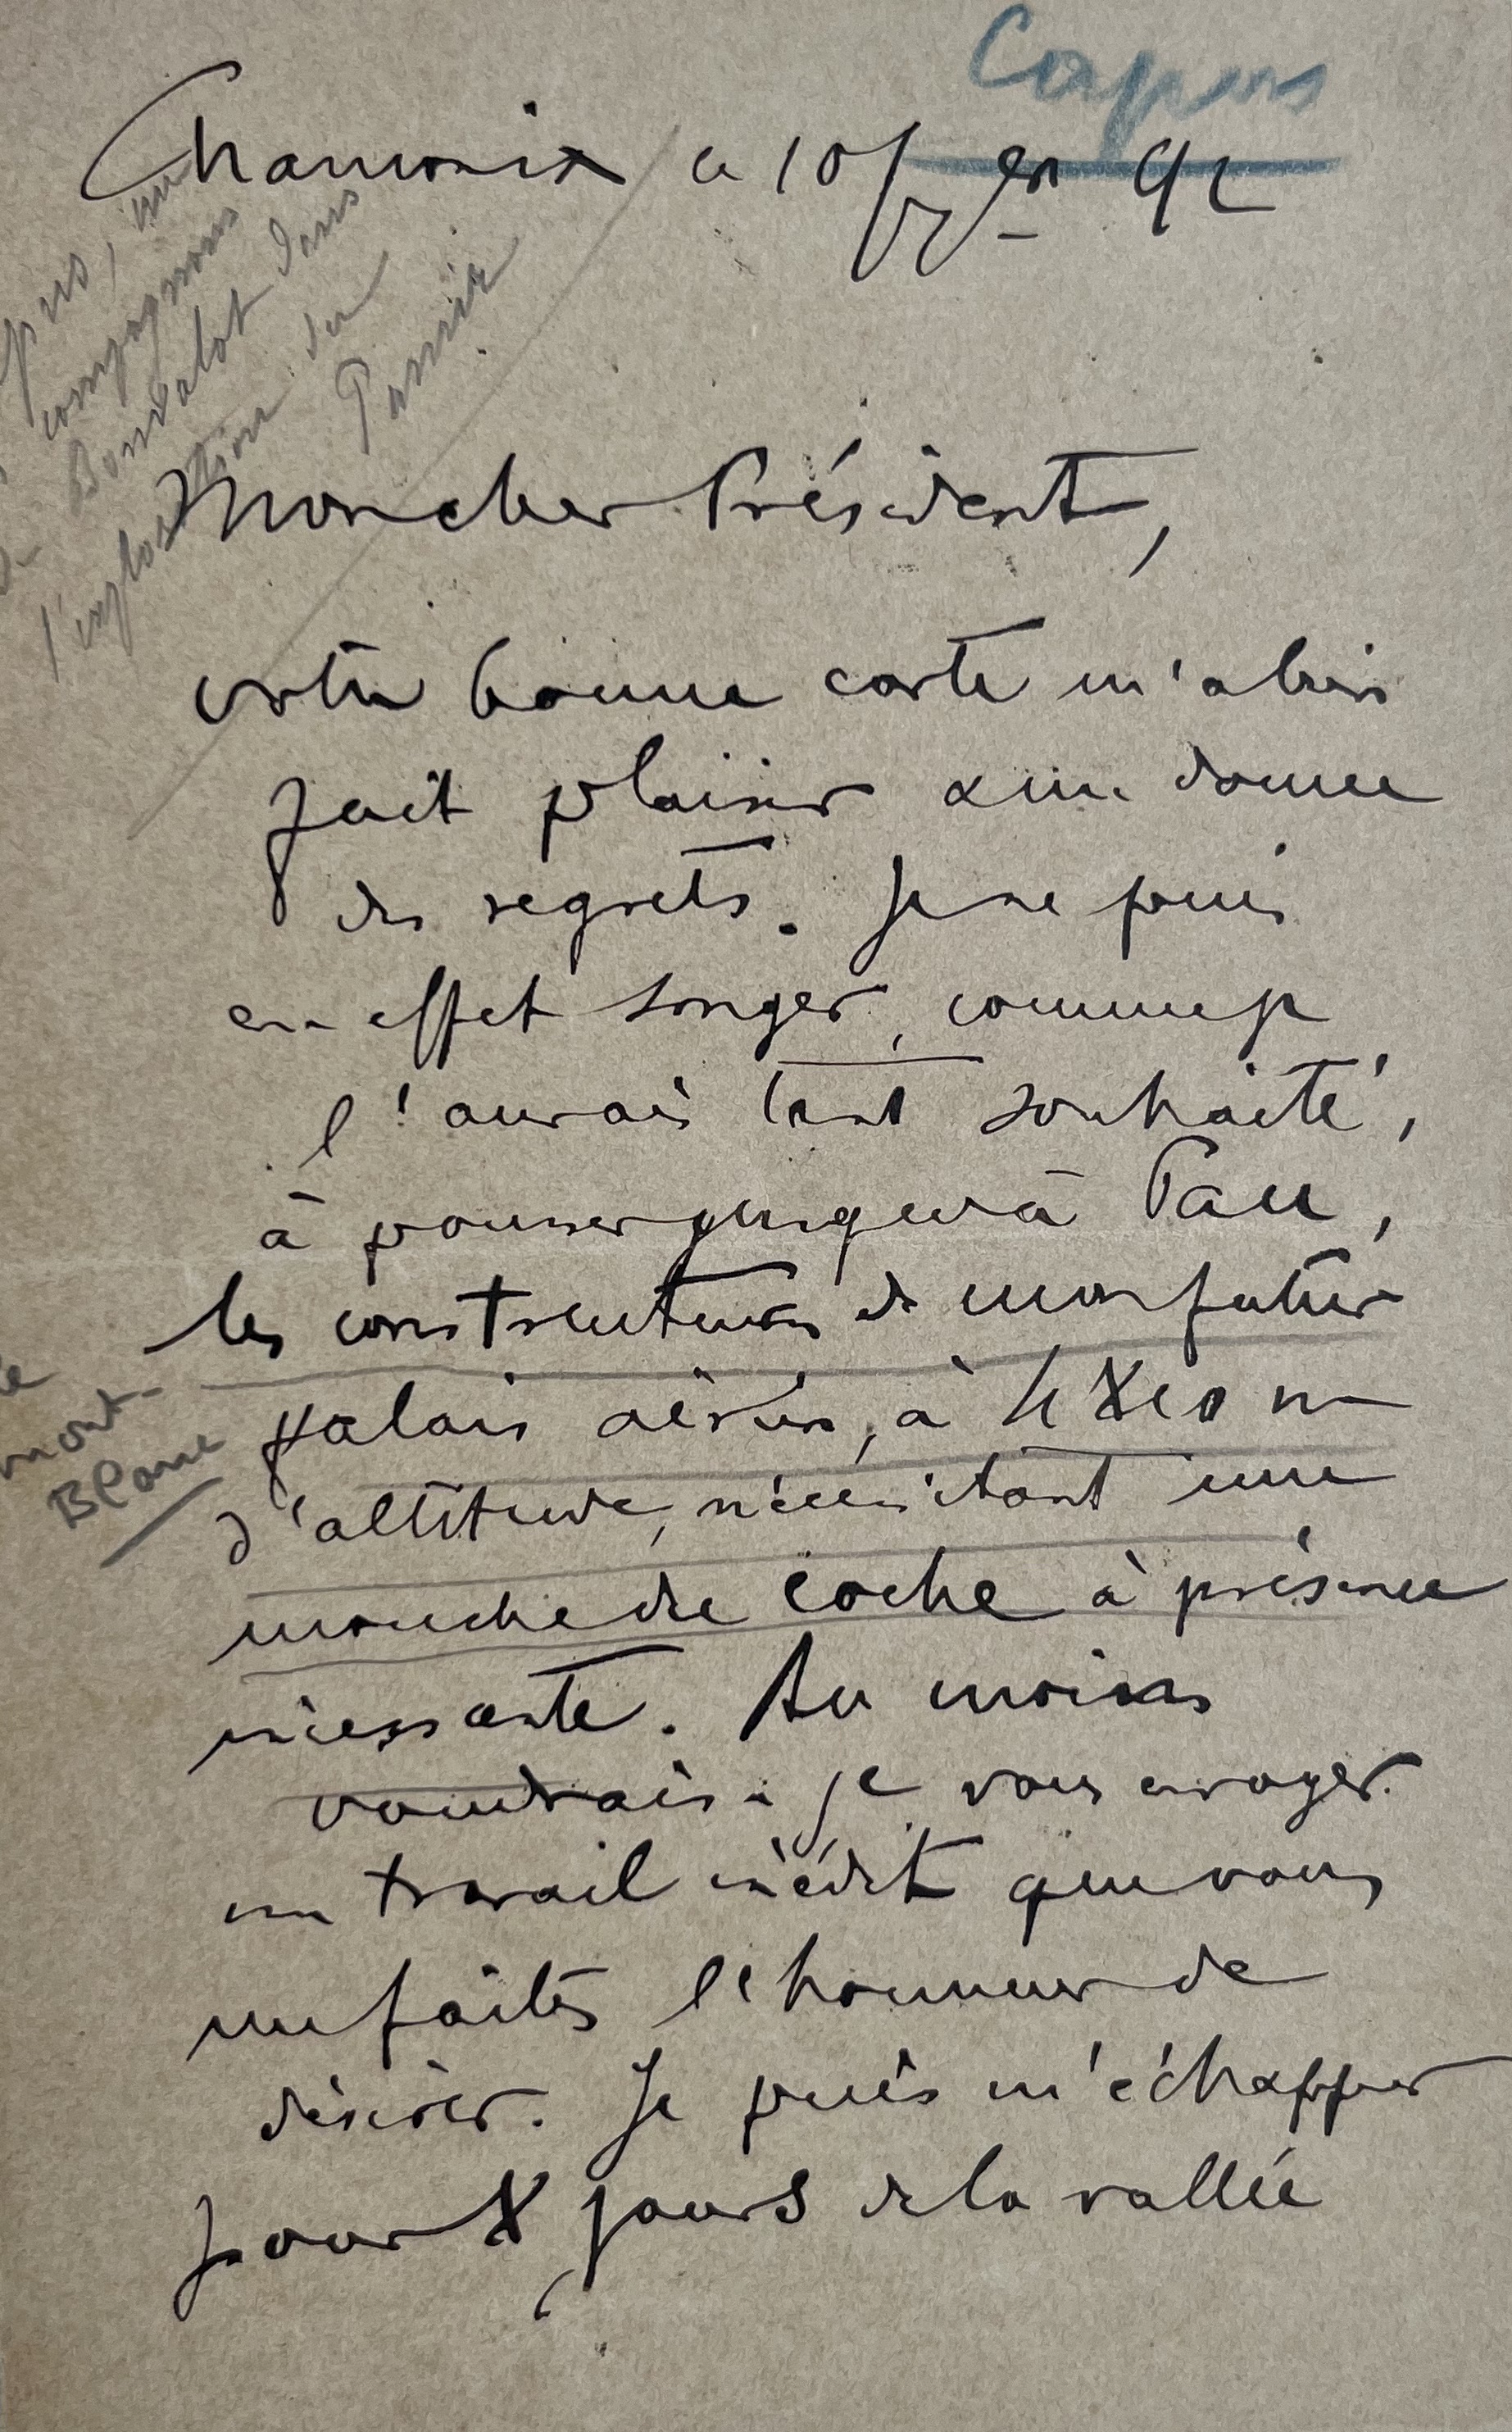 Capus
Chamonix ce 10 7bre 92
Capus, un
des compagnons
de Bonvalot dans
l'exploration du
Pamir
Mon cher Président,
votre bonne carte m'a bien
fait plaisir & me donne
des regrets. Je ne puis
en effet songer, comme je
l'aurais tant souhaité,
à pousser jusqu'à Pau,
les constructeurs de mon futur
palais aérien, à 4810 m
d'altitude, nécessitant une
mont-
Blanc
mouche du coche à présence
incessante. Au moins
voudrais-je vous envoyer
un travail inédit que vous
me faites l'honneur de
désirer. Je puis m'échapper
pour 8 jours de la vallée